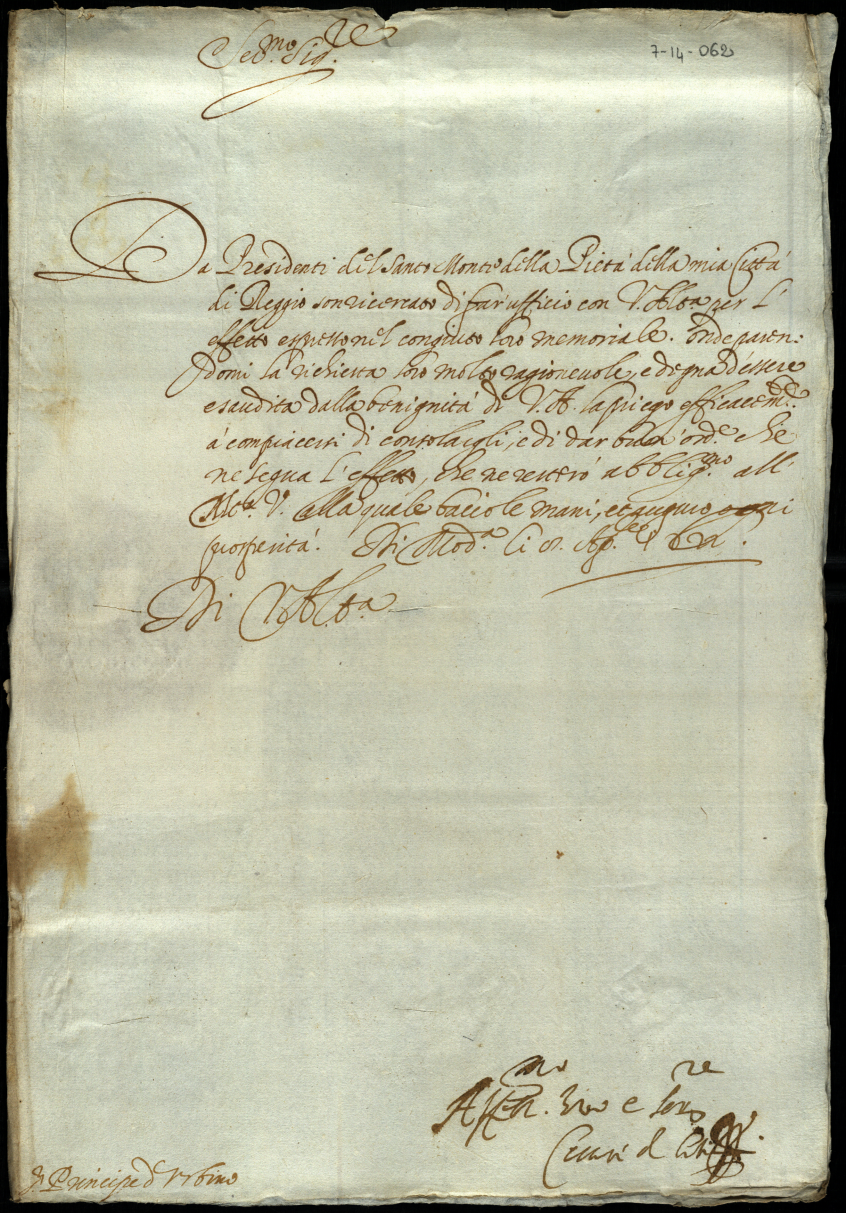 Ser.mo Sig.re
7-14-062
Da Presidenti del Santo Monte della Pietà della mia Città
di Reggio son ricercato di far ufficio con V. Alt.a per l'
effetto espresso nel congiunto loro memoriale. Onde paren:
domi la richiesta loro molto ragionevole, e degna d'essere
esaudita dalla benignità di V. A. la priego efficacem.te
à compiacersi di consolargli, e di dar buon ord.e che
ne segua l'effetto, che ne resterò abblig.mo all'
Alt.a V. alla quale baccio le mani, et auguro ogni
prosperità. Di Mod.a li 8.
Di V. Alt.a
Aff.mo e Ser.re
Cesare d'Este
S. Principe d'Urbino